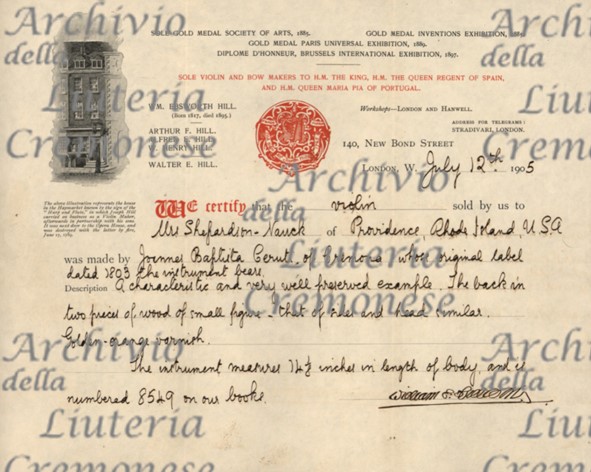 SOLE GOLD MEDAL SOCIETY OF ARTS, 1885. GOLD MEDAL INVENTIONS EXHIBITION, 1885.
GOLD MEDAL PARIS UNIVERSAL EXHIBITION, 1889.
DIPLOME D'HONNEUR, BRUSSELS INTERNATIONAL EXHIBITION, 1897.
SOLE VIOLIN AND BOW MAKERS TO H.M. THE KING, H.M. THE QUEEN REGENT OF SPAIN,
AND H.M. QUEEN MARIA PIA OF PORTUGAL.
WM. EBSWORTH HILL.
(Born 1817, died 1895.)
ARTHUR F. HILL.
ALFRED E. HILL.
W. HENRY HILL.
WALTER E. HILL.
Workshops—LONDON AND HANWELL.
ADDRESS FOR TELEGRAMS:
STRADIVARI, LONDON.
140, NEW BOND STREET
LONDON, W. July 12th 1905
The above illustration represents the house
in the Haymarket known by the sign of the
"Harp and Flute," in which Joseph Hill
carried on business as a Violin Maker,
afterwards in partnership with his sons.
It was next door to the Opera House, and
was destroyed with the latter by fire,
June 17, 1789.
WE certify that the violin sold by us to
Mrs Shepardson-Nauck of Providence, Rhode Island, U.S.A
was made by Joannes Baptista Ceruti of Cremona whose original label
dated 1803 the instrument bears.
Description A characteristic and very well preserved example. The back in
two pieces of wood of small figure - that of sides and head similar.
Golden-orange varnish.
The instrument measures 14 inches in length of body, and is
numbered 8549 on our books.
Archivio
della
Liuteria
Cremonese
Archivio
della
Liuteria
Cremonese
Archivio
della
Liuteria
Cremonese
Archivio
della
Liuteria
Archivio
della
Liuteria